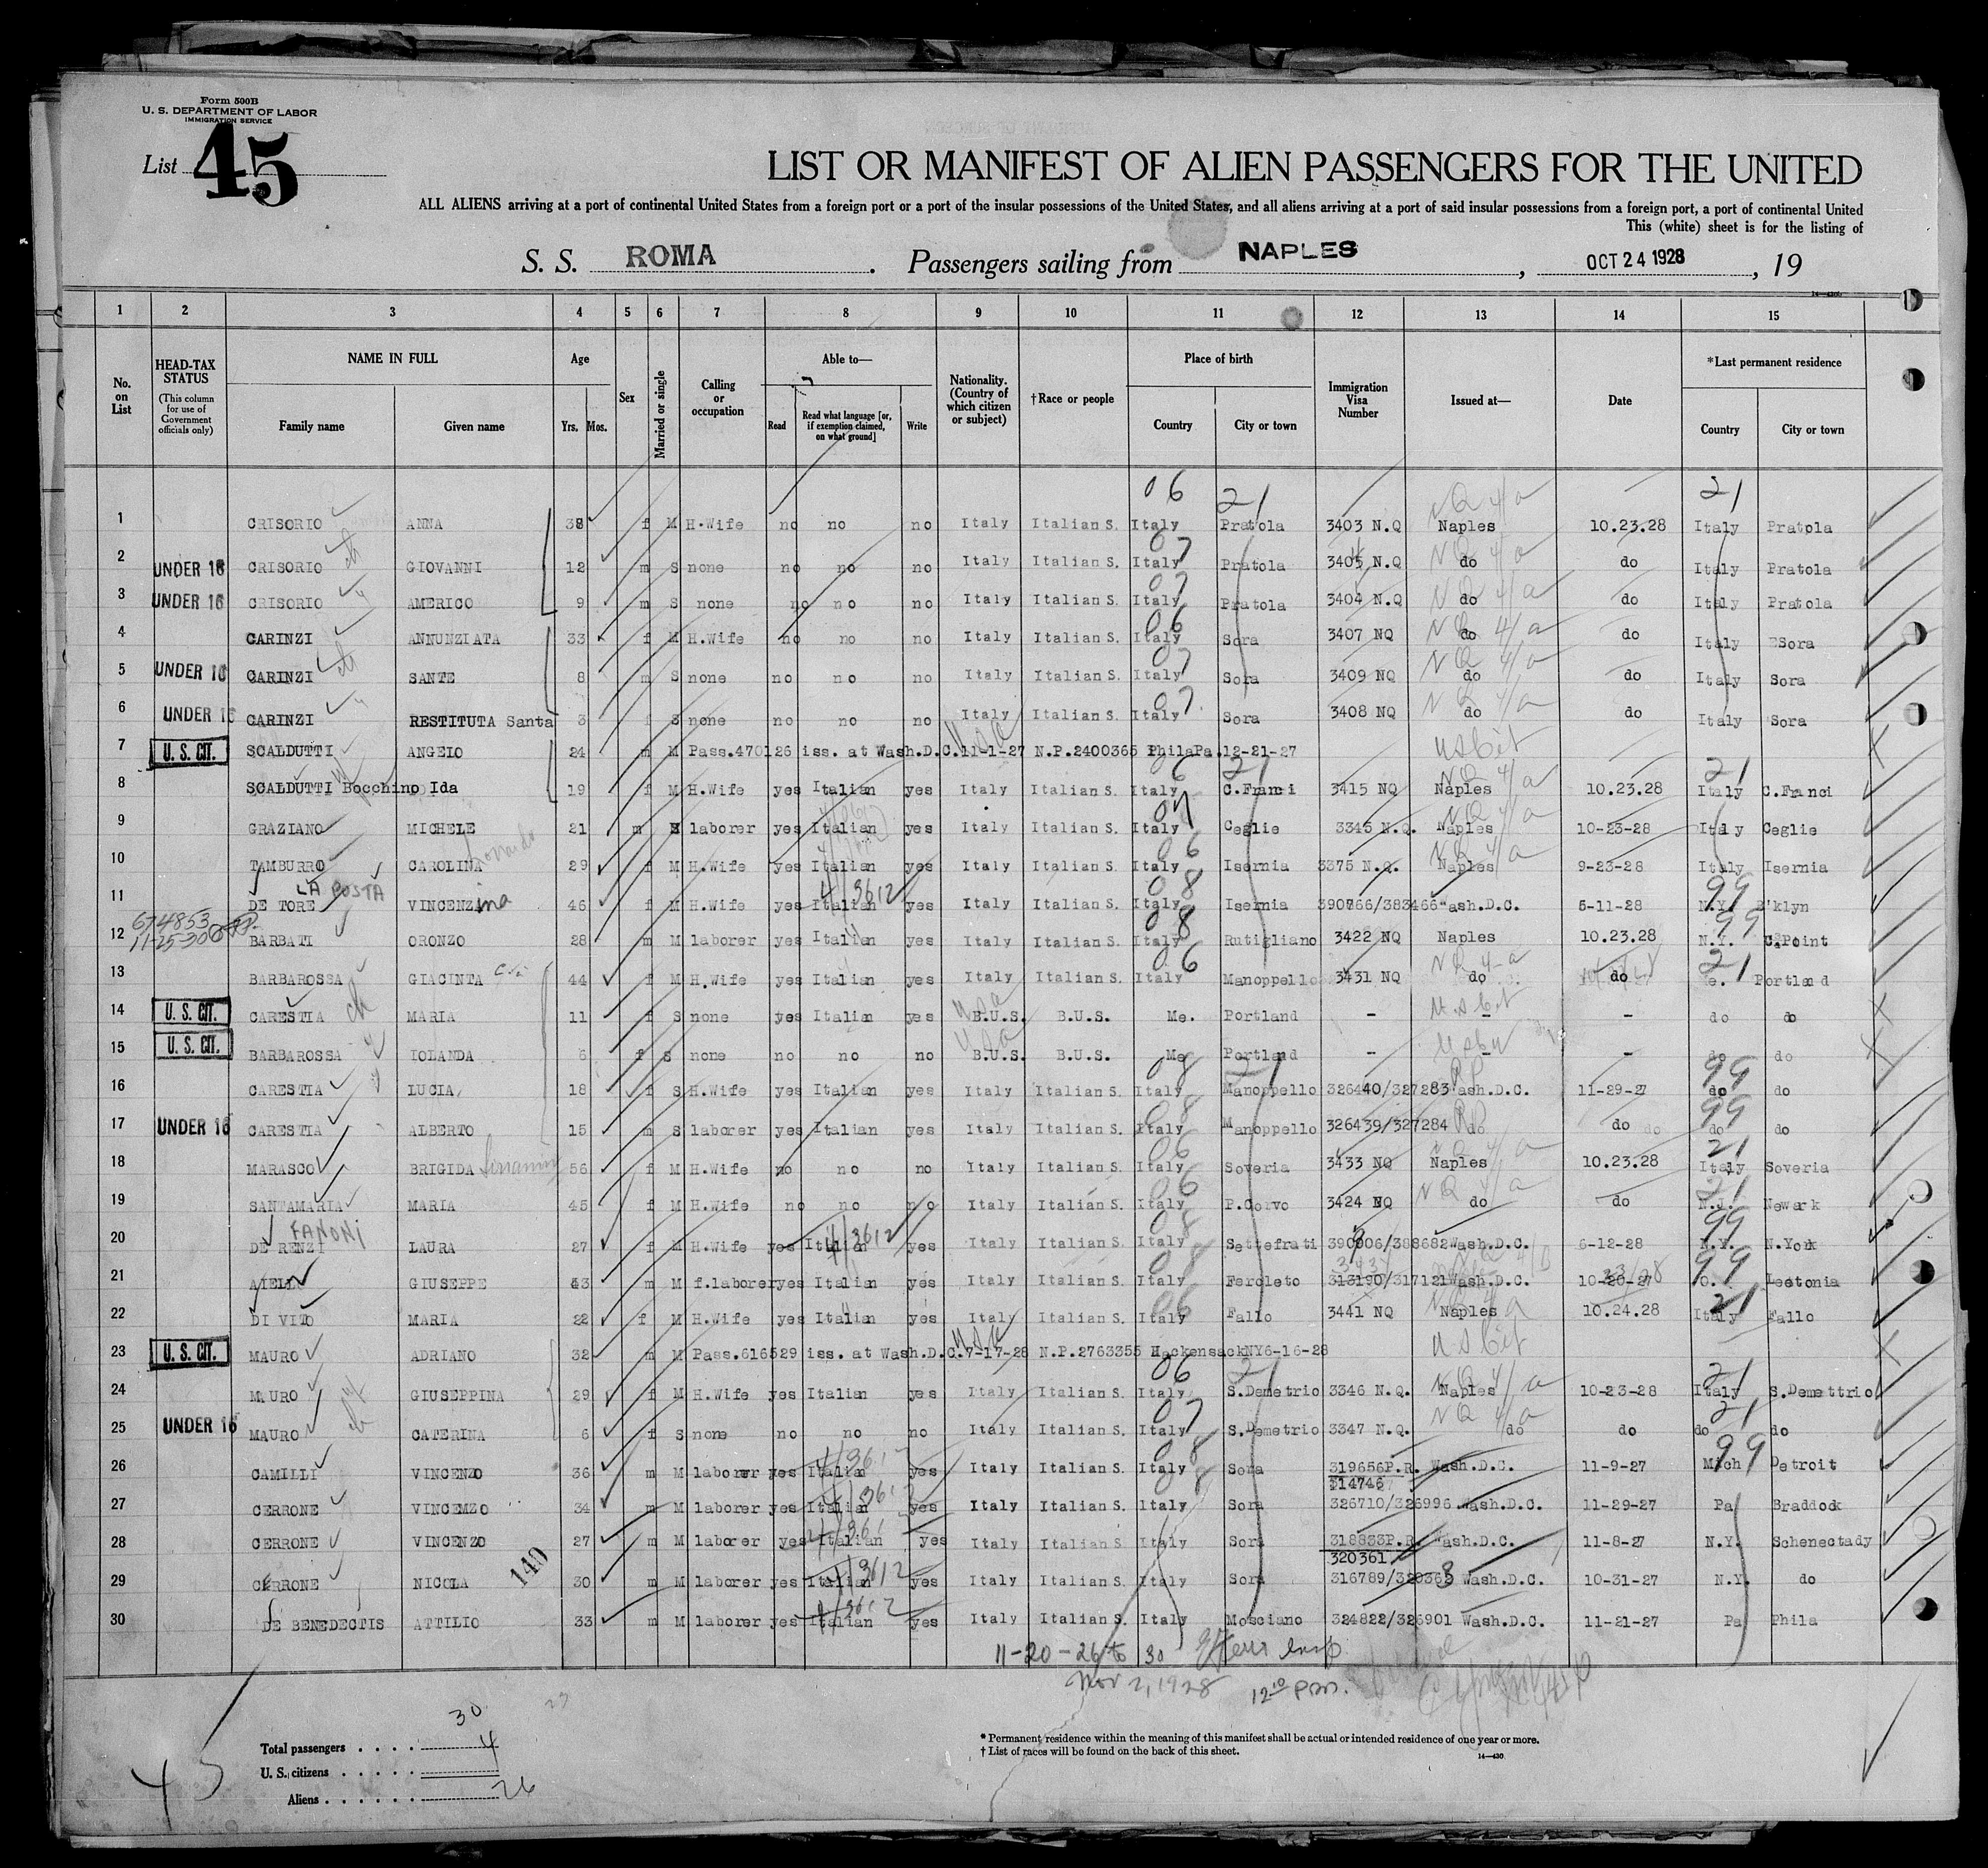 Form 500B
U. S. DEPARTMENT OF LABOR
IMMIGRATION SERVICE
List 45
LIST OR MANIFEST OF ALIEN PASSENGERS FOR THE UNITED
ALL ALIENS arriving at a port of continental United States from a foreign port or a port of the insular possessions of the United States, and all aliens arriving at a port of said insular possessions from a foreign port, a port of continental United
This (white) sheet is for the listing of
S. S. ROMA . Passengers sailing from NAPLES , OCT 24 1928 , 19
14—430
1 2 3 4 5 6 7 8 9 10 11 12 13 14 15
No. on List
HEAD-TAX STATUS
(This column for use of Government officials only)
NAME IN FULL
Family name Given name
Age
Yrs. Mos.
Sex
Married or single
Calling or occupation
Able to—
Read Read what language [or, if exemption claimed, on what ground] Write
Nationality. (Country of which citizen or subject)
†Race or people
Place of birth
Country City or town
Immigration Visa Number
Issued at—
Date
*Last permanent residence
Country City or town
06 21 NQ 4/a 21
1 CRISORIO ANNA 38 f M H.Wife no no no Italy Italian S. Italy Pratola 3403 N.Q Naples 10.23.28 Italy Pratola
2 UNDER 16 CRISORIO GIOVANNI 12 m S none no no no Italy Italian S. Italy Pratola 3405 N.Q do do Italy Pratola
3 UNDER 16 CRISORIO AMERICO 9 m S none no no no Italy Italian S. Italy Pratola 3404 N.Q do do Italy Pratola
4 CARINZI ANNUNZIATA 33 f M H.Wife no no no Italy Italian S. Italy Sora 3407 NQ do do Italy Sora
5 UNDER 16 CARINZI SANTE 8 m S none no no no Italy Italian S. Italy Sora 3409 NQ do do Italy Sora
6 UNDER 16 CARINZI RESTITUTA Santa 3 f S none no no no Italy Italian S. Italy Sora 3408 NQ do do Italy Sora
7 U. S. CIT. SCALDUTTI ANGELO 24 m M Pass.470126 iss. at Wash.D.C.11-1-27 N.P.2400365 PhilaPa.12-21-27 US Cit
8 SCALDUTTI Bocchino Ida 19 f M H.Wife yes Italian yes Italy Italian S. Italy C.Franci 3415 NQ Naples 10.23.28 Italy C.Franci
9 GRAZIANO MICHELE 21 m laborer yes Italian yes Italy Italian S. Italy Ceglie 3345 N.Q. Naples 10-23-28 Italy Ceglie
10 TAMBURRO CAROLINA 29 f M H.Wife yes Italian yes Italy Italian S. Italy Isernia 3375 N.Q. Naples 9-23-28 Italy Isernia
LA POSTA 4/3612
11 DE TORE VINCENZina 46 f M H.Wife yes Italian yes Italy Italian S. Italy Isernia 390766/383466 Wash.D.C. 5-11-28 N.Y. B'klyn
674853
11-25-30
12 BARBATI ORONZO 28 m M laborer yes Italian yes Italy Italian S. Italy Rutigliano 3422 NQ Naples 10.23.28 N.Y. C.Point
13 BARBAROSSA GIACINTA 44 f M H.Wife yes Italian yes Italy Italian S. Italy Manoppello 3431 NQ do do Me. Portland
14 U. S. CIT. CARESTIA MARIA 11 f S none yes Italian yes B.U.S. B.U.S. Me. Portland - - - do do
15 U. S. CIT. BARBAROSSA IOLANDA 6 f S none no no no B.U.S. B.U.S. Me Portland - - - do do
16 CARESTIA LUCIA 18 f S H.Wife yes Italian yes Italy Italian S. Italy Manoppello 326440/327283 Wash.D.C. 11-29-27 do do
17 UNDER 16 CARESTIA ALBERTO 15 m S laborer yes Italian yes Italy Italian S. Italy Manoppello 326439/327284 do do do do
18 MARASCO BRIGIDA 56 f M H.Wife no no no Italy Italian S. Italy Soveria 3433 NQ Naples 10.23.28 Italy Soveria
19 SANTAMARIA MARIA 45 f M H.Wife no no no Italy Italian S. Italy P.Corvo 3424 NQ do do N.J. Newark
FANONI 4/3612
20 DE RENZI LAURA 27 f M H.Wife yes Italian yes Italy Italian S. Italy Settefrati 390906/388682 Wash.D.C. 6-12-28 N.Y. N.York
21 AIELLO GIUSEPPE 43 m M f.laborer yes Italian yes Italy Italian S. Italy Feroleto 313190/317121 Wash.D.C. 10-20-27 O. Leetonia
22 DI VITO MARIA 22 f M H.Wife yes Italian yes Italy Italian S. Italy Fallo 3441 NQ Naples 10.24.28 Italy Fallo
23 U. S. CIT. MAURO ADRIANO 32 m M Pass.616529 iss. at Wash.D.C.7-17-28 N.P.2763355 HackensackNY6-16-28 US Cit
24 MAURO GIUSEPPINA 29 f M H.Wife yes Italian yes Italy Italian S. Italy S.Demetrio 3346 N.Q. Naples 10-23-28 Italy S.Demettrio
25 UNDER 16 MAURO CATERINA 6 f S none no no no Italy Italian S. Italy S.Demetrio 3347 N.Q. do do do do
26 CAMILLI VINCENZO 36 m M laborer yes Italian yes Italy Italian S. Italy Sora 319656P.R. Wash.D.C. 11-9-27 Mich Detroit
314746
27 CERRONE VINCEMZO 34 m M laborer yes Italian yes Italy Italian S. Italy Sora 326710/326996 Wash.D.C. 11-29-27 Pa Braddock
28 CERRONE VINCENZO 27 m M laborer yes Italian yes Italy Italian S. Italy Sora 318833P.R. Wash.D.C. 11-8-27 N.Y. Schenectady
320361
29 CERRONE NICOLA 140 30 m M laborer yes Italian yes Italy Italian S. Italy Sora 316789/320363 Wash.D.C. 10-31-27 N.Y. do
30 DE BENEDECTIS ATTILIO 33 m M laborer yes Italian yes Italy Italian S. Italy Mosciano 324822/326901 Wash.D.C. 11-21-27 Pa Phila
11-20-26 to 30
Nov 2, 1928 12 10 P.M.
Total passengers . . . . 30
U. S. citizens . . . . . 4
Aliens . . . . . . 26
45
* Permanent residence within the meaning of this manifest shall be actual or intended residence of one year or more.
† List of races will be found on the back of this sheet.
14—430